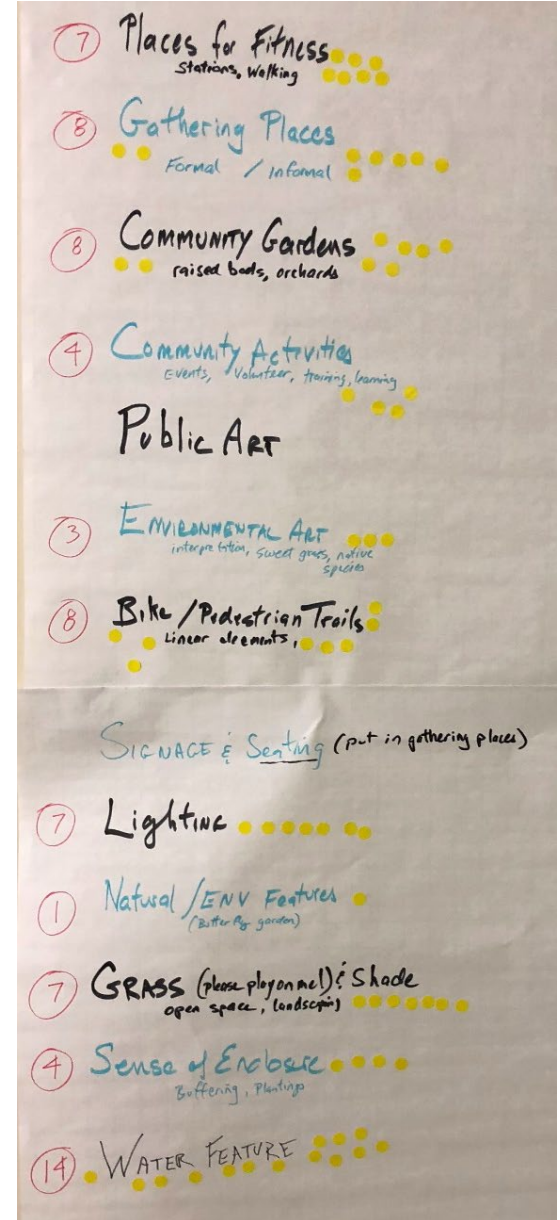 7 Places for Fitness
Stations, Walking
8 Gathering Places
Formal / Informal
8 Community Gardens
raised beds, orchards
4 Community Activities
Events, Volunteer, training, learning
Public Art
3 Environmental Art
interpretation, sweet grass, native
species
8 Bike / Pedestrian Trails
Linear elements,
Signage & Seating (put in gathering places)
7 Lighting
1 Natural / ENV Features
(Butterfly garden)
7 GRASS (please play on me!) & Shade
open space, landscaping
4 Sense of Enclosure
Buffering, Plantings
14 WATER FEATURE